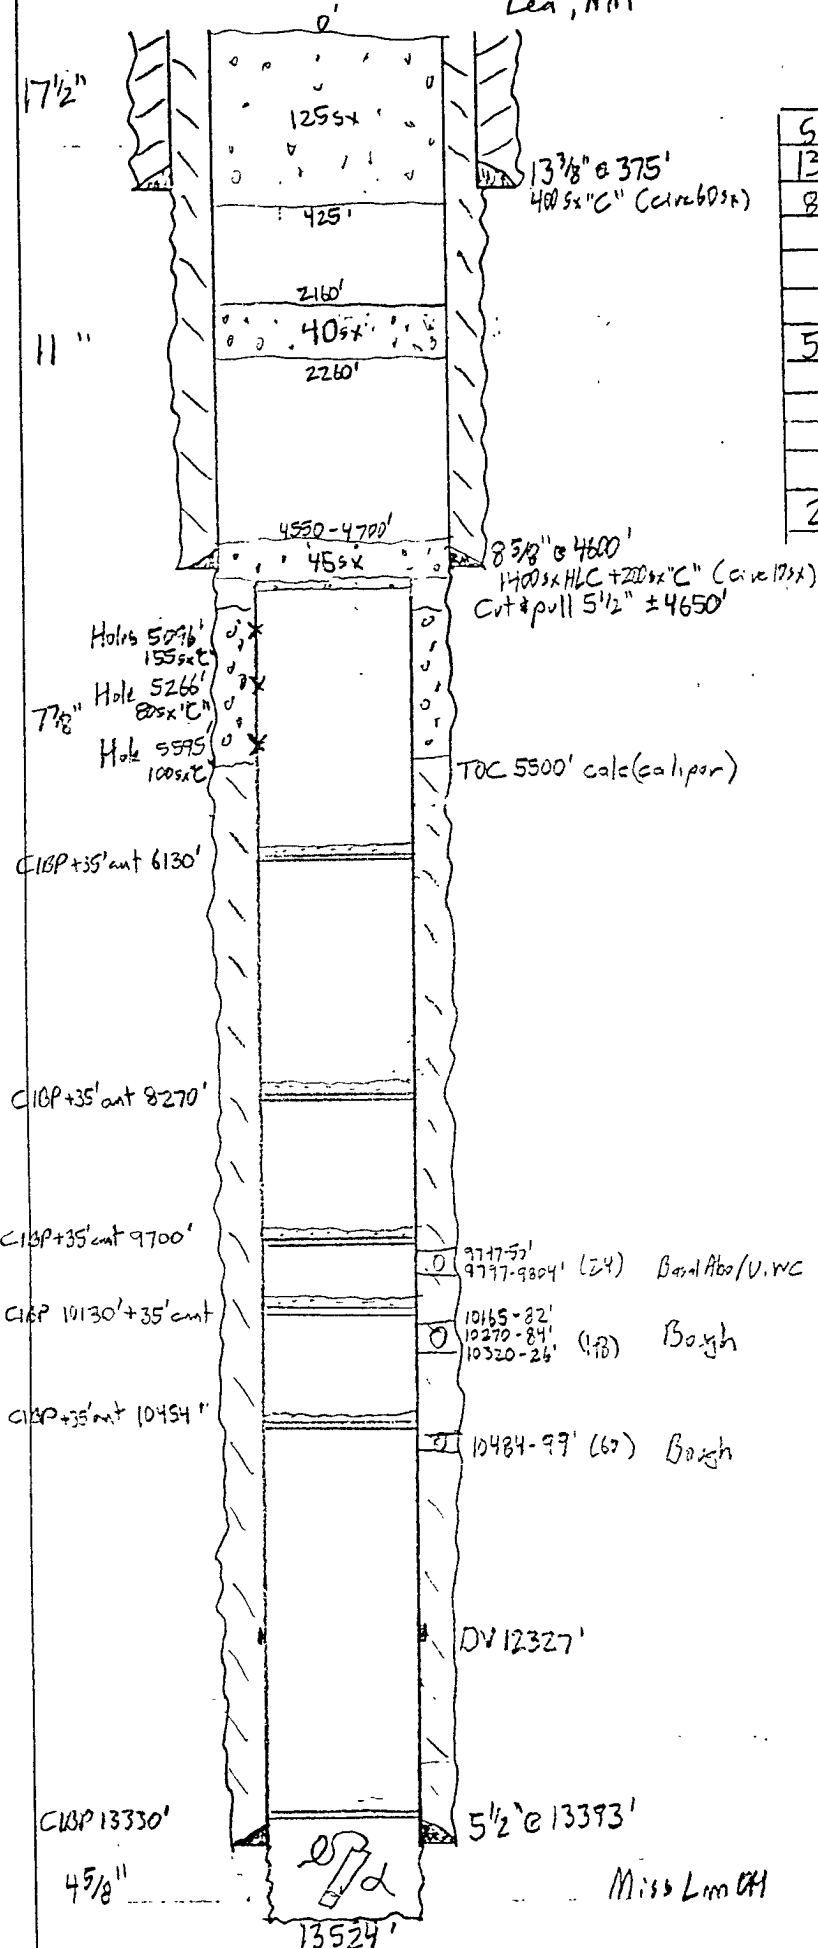 Lea, NM
0'
17 1/2"
125sx
13 3/8" @ 375'
400 sx "C" (circ 60sx)
425'
5
13
8
5
2
2160'
40sx
11"
2260'
4550-4700'
45sx
8 5/8" @ 4600'
1400sx HLC + 200sx "C" (circ 175x)
Cut & pull 5 1/2" ± 4650'
Holes 5096'
155sx"C"
Hole 5266'
80sx "C"
7 7/8"
Hole 5595'
100sx"C"
TOC 5500' calc (caliper)
CIBP +35' cmt 6130'
CIBP +35' cmt 8270'
CIBP +35' cmt 9700'
9797-9804' (24) Basal Abo/U. WC
CIBP 10130' +35' cmt
10165-82'
10270-84'
10320-26' Bough
CIBP +35' cmt 10454"
10484-99' Bough
DV 12327'
CIBP 13330'
5 1/2" @ 13393'
4 5/8"
Miss Lm OH
13524'